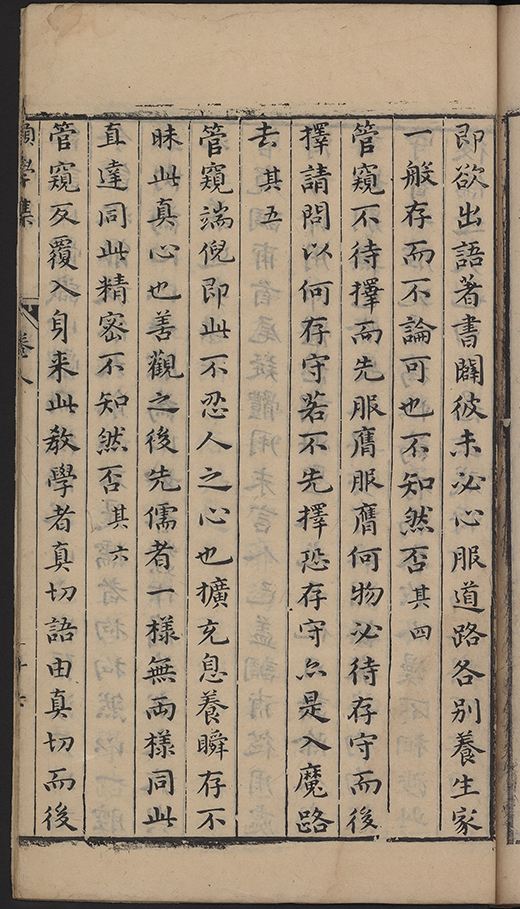 即欲出語著書闢彼未必心服道路各別養生家
一般存而不論可也不知然否其四
管窺不待擇而先服膺服膺何物必待存守而後
擇請問以何存守若不先擇恐存守亦是入魔路
去其五
管窺端倪即此不忍人之心也擴充息養瞬存不
昧此真心也善觀之後先儒者一樣無兩樣同此
直達同此精密不知然否其六
管窺反覆入身来此教學者真切語由真切而後
學集
卷八